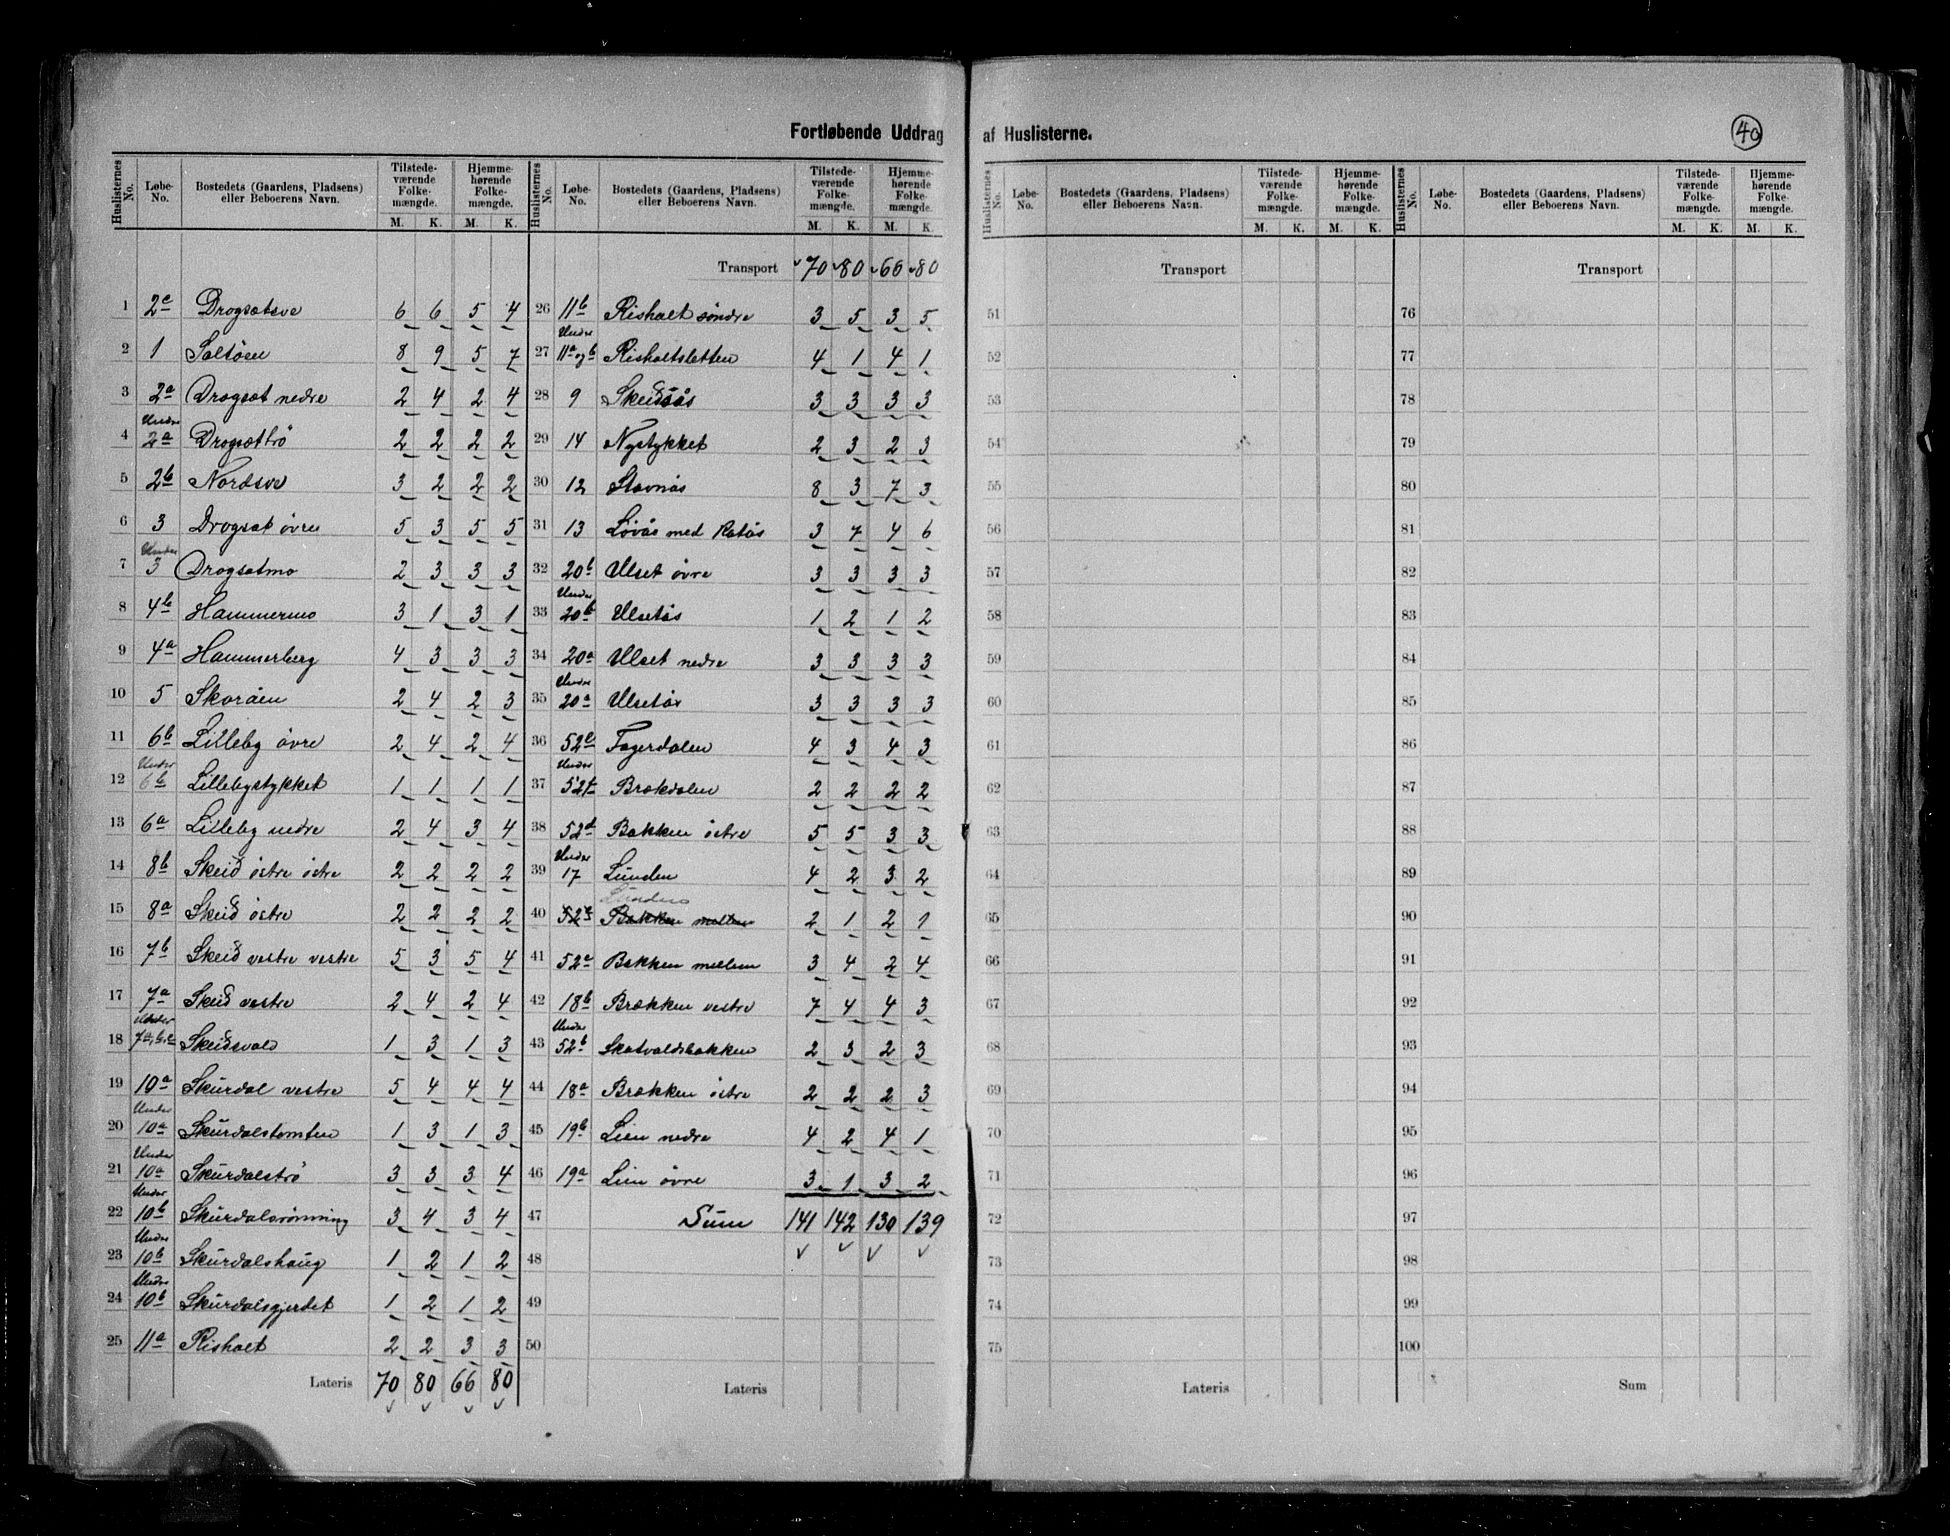 Fortløbende Uddrag af Huslisterne.
40
Huslisternes No. Løbe-No. Bostedets (Gaardens, Pladsens) eller Beboerens Navn. Tilstedeværende Folkemængde. M. K. Hjemmehørende Folkemængde. M. K.
1 2c Drogsetsve 6 6 5 4
2 1 Saltøsen 8 9 5 7
3 2a Drogset nedre 2 4 2 4
4 Under 2a Drogsettrö 2 2 2 2
5 2b Nordsve 3 2 2 2
6 3 Drogset øvre 5 3 5 5
7 Under 3 Drogsetmo 2 3 3 3
8 4b Hammermo 3 1 3 1
9 4a Hammerberg 4 3 3 3
10 5 Skoraen 2 4 2 3
11 6b Lilleby øvre 2 4 2 4
12 Under 6b Lillebystykket 1 1 1 1
13 6a Lilleby nedre 2 4 3 4
14 8b Skeid östre östre 2 2 2 2
15 8a Skeid östre 2 2 2 2
16 7b Skeid vestre vestre 5 3 5 4
17 7a Skeid vestre 2 4 2 4
18 Under 7a,b,c Skeidsvald 1 3 1 3
19 10a Skurdal vestre 5 4 4 4
20 Under 10a Skurdalstomten 1 3 1 3
21 Under 10a Skurdalströ 3 3 3 4
22 Under 10b Skurdalsrönning 3 4 3 4
23 Under 10b Skurdalshaug 1 2 1 2
24 Under 10b Skurdalsgjerdet 1 2 1 2
25 11a Risholt 2 2 3 3
Lateris 70 80 66 80
Huslisternes No. Løbe-No. Bostedets (Gaardens, Pladsens) eller Beboerens Navn. Tilstedeværende Folkemængde. M. K. Hjemmehørende Folkemængde. M. K.
Transport 70 80 66 80
26 11b Risholt söndre 3 5 3 5
27 Under 11a og b Risholtsletten 4 1 4 1
28 9 Skeidsås 3 3 3 3
29 14 Nystykket 2 3 2 3
30 12 Stavnås 8 3 7 3
31 13 Løvås med Ratås 3 4 4 6
32 20b Ulset øvre 3 3 3 3
33 Under 20b Ulsetås 1 2 1 2
34 20a Ulset nedre 3 3 3 3
35 Under 20a 3 3 3 3
36 52e Fagerdalen 4 3 4 3
37 Under 52f Brækdalen 2 2 2 2
38 52d Bakken östre 5 5 3 3
39 Under 17 Lunden 4 2 3 2
40 52c Bakken mellem 2 1 2 1
41 52a Bakken mellem 3 4 2 4
42 18b Brækken vestre 7 4 4 3
43 Under 52b Skatvaldsbakken 2 3 2 3
44 18a Brækken östre 2 2 2 3
45 19b Lien nedre 4 2 4 1
46 19a Lien øvre 3 1 3 2
47 Sum 141 142 130 139
48
49
50
Lateris
Huslisternes No. Løbe-No. Bostedets (Gaardens, Pladsens) eller Beboerens Navn. Tilstedeværende Folkemængde. M. K. Hjemmehørende Folkemængde. M. K.
Transport
51
52
53
54
55
56
57
58
59
60
61
62
63
64
65
66
67
68
69
70
71
72
73
74
75
Lateris
Huslisternes No. Løbe-No. Bostedets (Gaardens, Pladsens) eller Beboerens Navn. Tilstedeværende Folkemængde. M. K. Hjemmehørende Folkemængde. M. K.
Transport
76
77
78
79
80
81
82
83
84
85
86
87
88
89
90
91
92
93
94
95
96
97
98
99
100
Sum